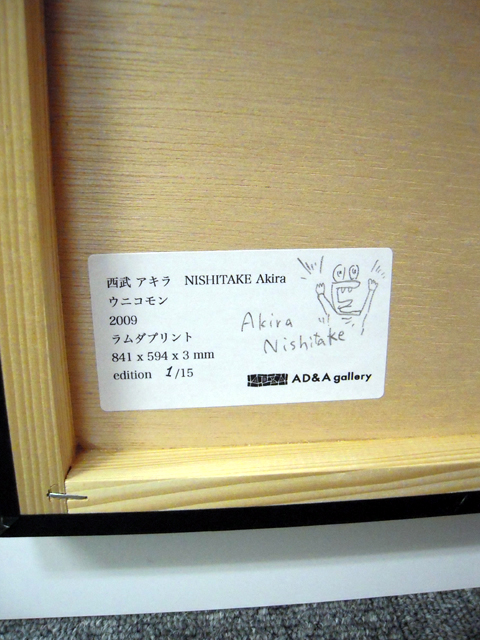 西武 アキラ　NISHITAKE Akira
ウニコモン
2009
ラムダプリント
841 x 594 x 3 mm
edition 1/15
Akira
Nishitake
AD&A gallery